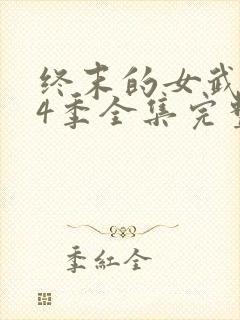 终末的女武
4季全集完整
季紅全